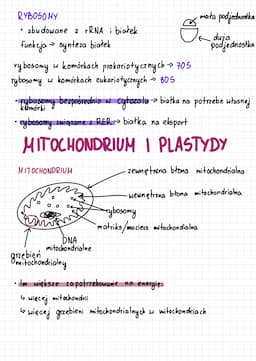 RYBOSOMY
• zbudowane z rRNA i białek
funkcja → synteza białek
mała podjednostka
duża podjednostka
rybosomy w komórkach prokariotycznych → 70S
rybosomy w komórkach eukariotycznych → 80S
• rybosomy bezpośrednio w cytozolu → białka na potrzeby własnej
komórki
• rybosomy związane z RER → białka na eksport
MITOCHONDRIUM I PLASTYDY
MITOCHONDRIUM
zewnętrzna błona mitochondrialna
wewnętrzna błona mitochondrialna
rybosomy
matriks/macierz mitochondrialna
DNA
mitochondrialne
grzebień
mitochondrialny
• im większe zapotrzebowanie na energię
↳ więcej mitochondrii
↳ więcej grzebieni mitochondrialnych w mitochondriach